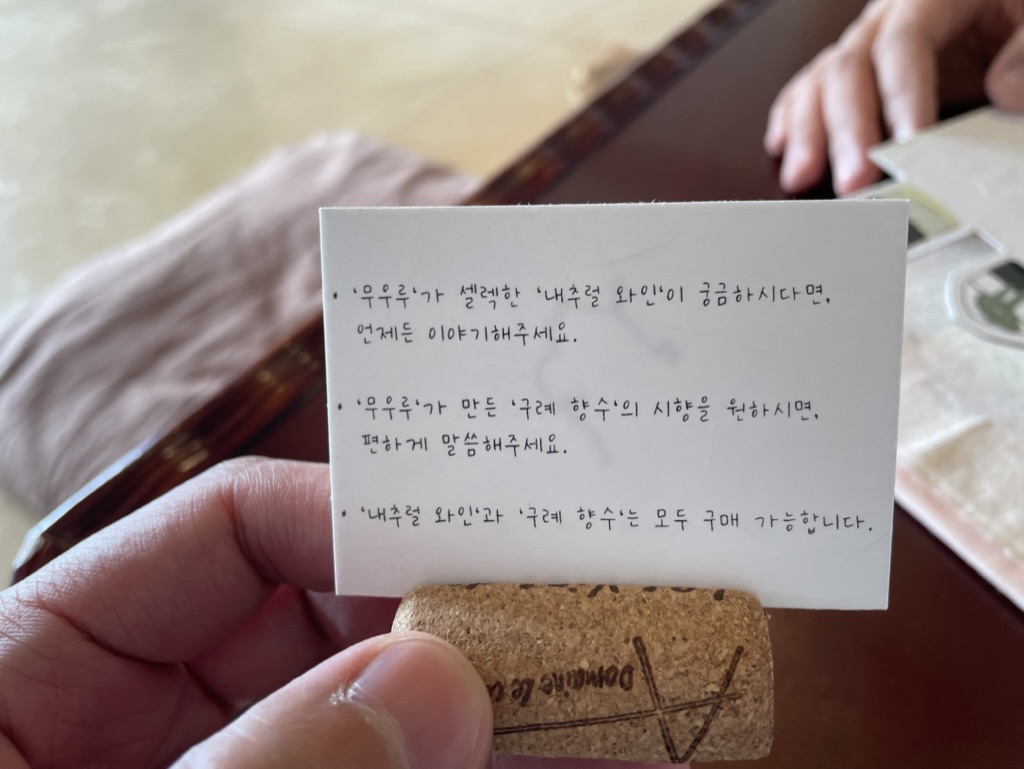 • '무우루'가 셀렉한 '내추럴 와인'이 궁금하시다면,
언제든 이야기해주세요.
• '무우루'가 만든 '구례 향수'의 시향을 원하시면,
편하게 말씀해주세요.
• '내추럴 와인'과 '구례 향수'는 모두 구매 가능합니다.
Domaine